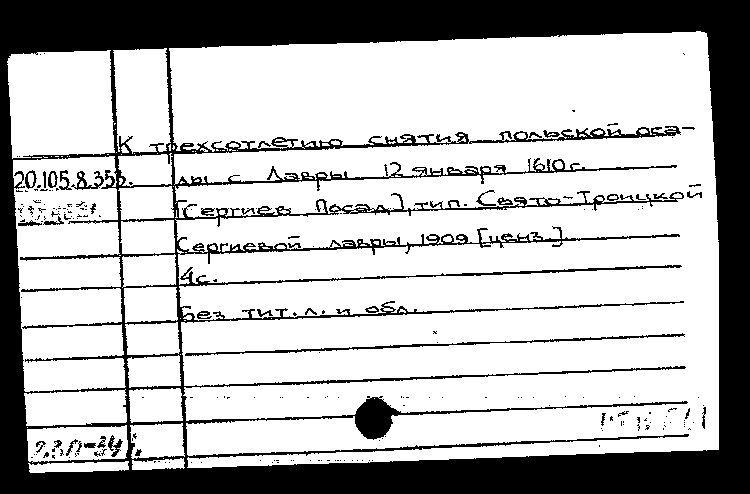 К трехсотлетию снятия польской оса-
20.105.8.353. ды с Лавры 12 января 1610 г.
[Сергиев Посад], тип. Свято-Троицкой
Сергиевой лавры, 1909 [ценз.]
4 с.
Без тит. л. и обл.